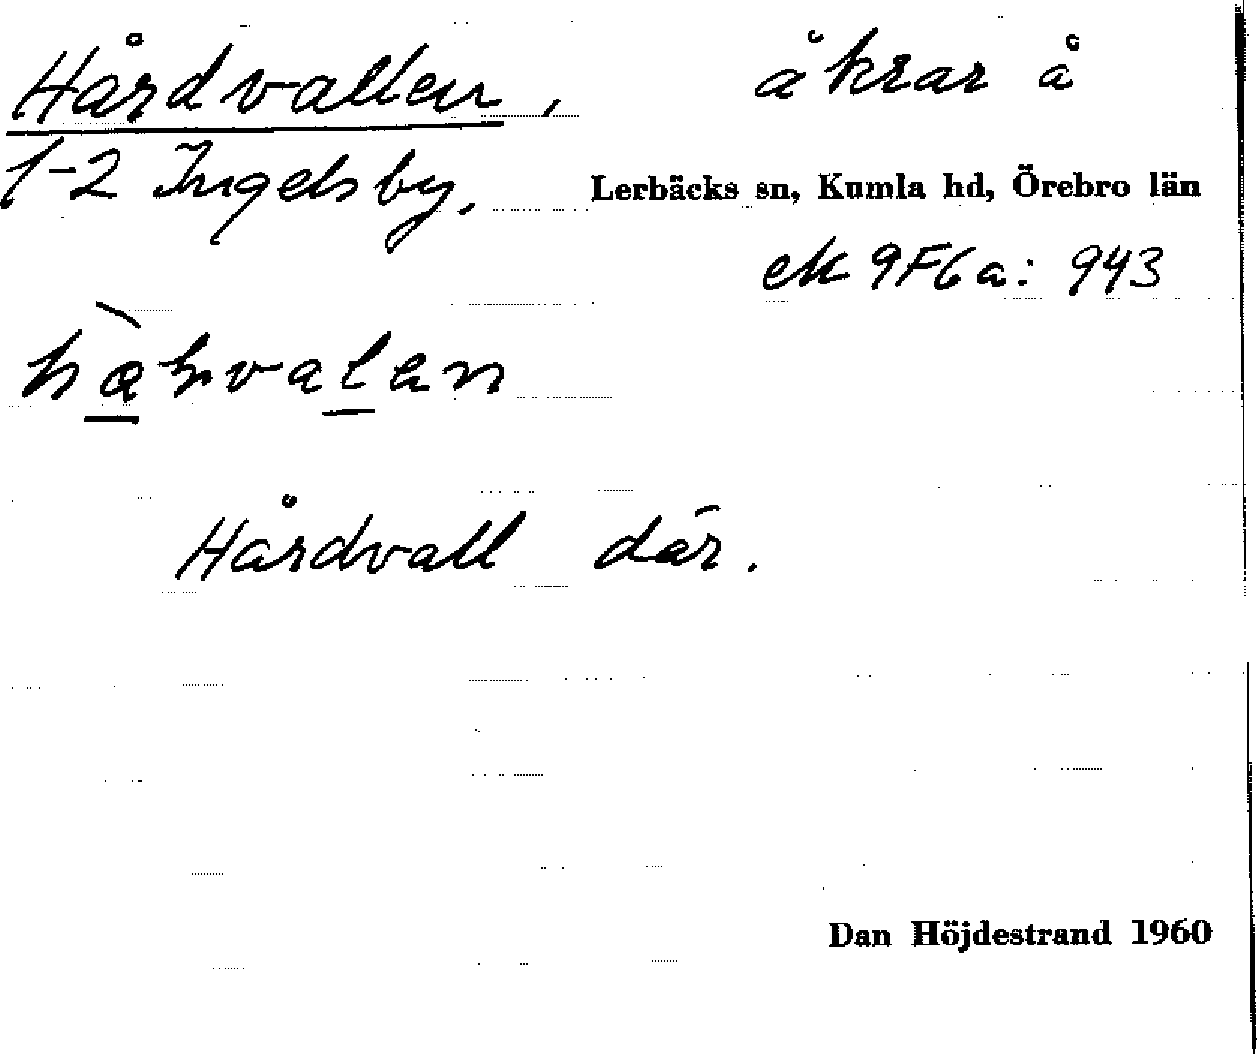 Hårdvallen, åkrar å
1-2 Ingelsby, Lerbäcks sn, Kumla hd, Örebro län
ek 9F6a: 943
Hårdvall där.
Dan Höjdestrand 1960